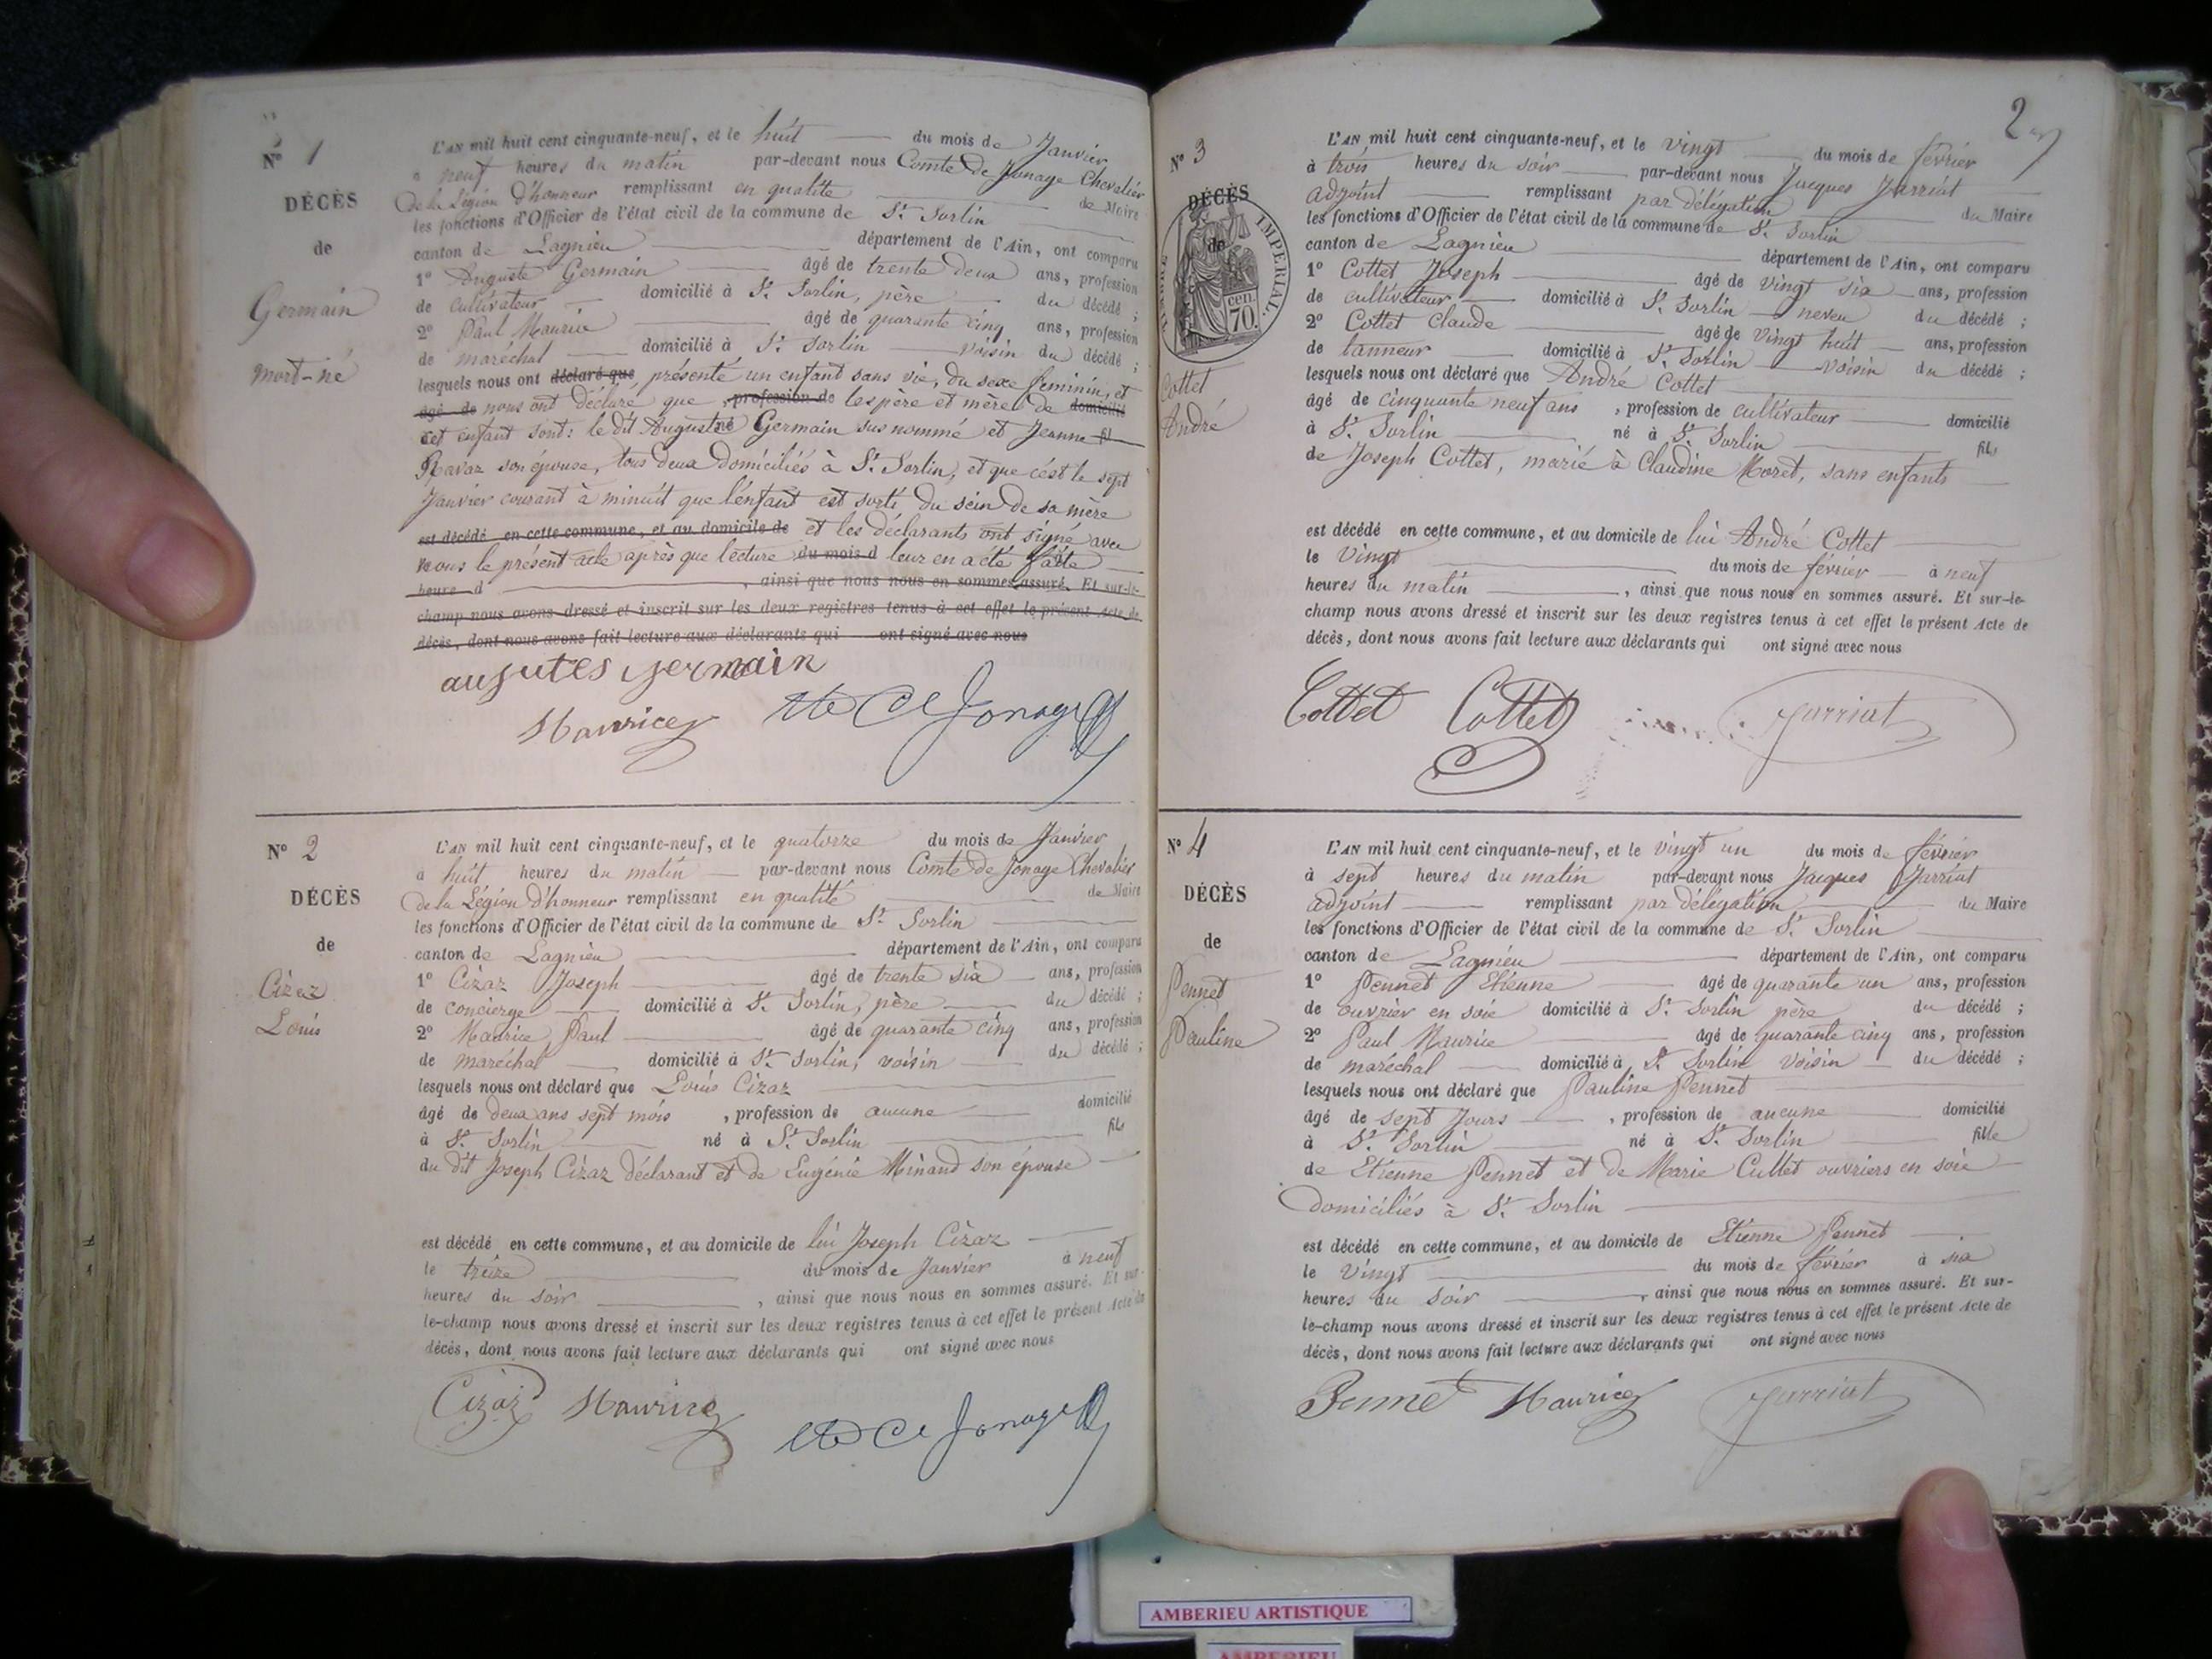 Nº 1
DÉCÈS
de
Germain
mort-né
L'AN mil huit cent cinquante-neuf, et le huit du mois de Janvier
à neuf heures du matin par-devant nous Comte de Jonage Chevalier
de la Légion d'honneur remplissant en qualité de Maire
les fonctions d'Officier de l'état civil de la commune de St. Sorlin
canton de Lagnieu département de l'Ain, ont comparu
1º Auguste Germain âgé de trente deux ans, profession
de cultivateur domicilié à St. Sorlin, père du décédé ;
2º Paul Maurice âgé de quarante cinq ans, profession
de maréchal domicilié à St. Sorlin voisin du décédé ;
lesquels nous ont déclaré que présenté un enfant sans vie, du sexe féminin, et
âgé de nous ont déclaré que , profession de les père et mère de domicilié
cet enfant sont : le dit Auguste né Germain sus nommé et Jeanne fil
Ravaz son épouse, tous deux domiciliés à St. Sorlin, et que c'est le sept
Janvier courant à minuit que l'enfant est sorti du sein de sa mère
est décédé en cette commune, et au domicile de et les déclarants ont signé avec
nous le présent acte après que lecture du mois d leur en a été faite
heure d , ainsi que nous nous en sommes assuré. Et sur-le-
champ nous avons dressé et inscrit sur les deux registres tenus à cet effet le présent Acte de
décès, dont nous avons fait lecture aux déclarants qui ont signé avec nous
augutes germain
Maurice Cte de Jonage
Nº 2
DÉCÈS
de
Cizaz
Louis
L'AN mil huit cent cinquante-neuf, et le quatorze du mois de Janvier
à huit heures du matin par-devant nous Comte de Jonage Chevalier
de la Légion d'honneur remplissant en qualité de Maire
les fonctions d'Officier de l'état civil de la commune de St. Sorlin
canton de Lagnieu département de l'Ain, ont comparu
1º Cizaz Joseph âgé de trente six ans, profession
de concierge domicilié à St. Sorlin, père du décédé ;
2º Maurice, Paul âgé de quarante cinq ans, profession
de maréchal domicilié à St. Sorlin, voisin du décédé ;
lesquels nous ont déclaré que Louis Cizaz
âgé de deux ans sept mois , profession de aucune domicilié
à St. Sorlin né à St. Sorlin fils
du dit Joseph Cizaz déclarant et de Eugénie Minand son épouse
est décédé en cette commune, et au domicile de lui Joseph Cizaz
le treize du mois de Janvier à neuf
heures du soir , ainsi que nous nous en sommes assuré. Et sur-
le-champ nous avons dressé et inscrit sur les deux registres tenus à cet effet le présent Acte de
décès, dont nous avons fait lecture aux déclarants qui ont signé avec nous
Cizaz Maurice Cte de Jonage
2
Nº 3
DÉCÈS
de
TIMBRE IMPERIAL
70 cen.
Cottet
André
L'AN mil huit cent cinquante-neuf, et le vingt du mois de février
à trois heures du soir par-devant nous Jacques Jarriat
adjoint remplissant par délégation du Maire
les fonctions d'Officier de l'état civil de la commune de St. Sorlin
canton de Lagnieu département de l'Ain, ont comparu
1º Cottet Joseph âgé de vingt six ans, profession
de cultivateur domicilié à St. Sorlin neveu du décédé ;
2º Cottet Claude âgé de vingt huit ans, profession
de tanneur domicilié à St. Sorlin voisin du décédé ;
lesquels nous ont déclaré que André Cottet
âgé de cinquante neuf ans , profession de cultivateur domicilié
à St. Sorlin né à St. Sorlin fils
de Joseph Cottet, marié à Claudine Moret, sans enfants
est décédé en cette commune, et au domicile de lui André Cottet
le vingt du mois de février à neuf
heures du matin , ainsi que nous nous en sommes assuré. Et sur-le-
champ nous avons dressé et inscrit sur les deux registres tenus à cet effet le présent Acte de
décès, dont nous avons fait lecture aux déclarants qui ont signé avec nous
Cottet Cottet Jarriat
Nº 4
DÉCÈS
de
Pennet
Pauline
L'AN mil huit cent cinquante-neuf, et le vingt un du mois de février
à sept heures du matin par-devant nous Jacques Jarriat
adjoint remplissant par délégation du Maire
les fonctions d'Officier de l'état civil de la commune de St. Sorlin
canton de Lagnieu département de l'Ain, ont comparu
1º Pennet Etienne âgé de quarante un ans, profession
de ouvrier en soie domicilié à St. Sorlin père du décédé ;
2º Paul Maurice âgé de quarante cinq ans, profession
de maréchal domicilié à St. Sorlin voisin du décédé ;
lesquels nous ont déclaré que Pauline Pennet
âgé de sept jours , profession de aucune domicilié
à St. Sorlin né à St. Sorlin fille
de Etienne Pennet et de Marie Cullet ouvriers en soie
domiciliés à St. Sorlin
est décédé en cette commune, et au domicile de Etienne Pennet
le vingt du mois de février à six
heures du soir , ainsi que nous nous en sommes assuré. Et sur-
le-champ nous avons dressé et inscrit sur les deux registres tenus à cet effet le présent Acte de
décès, dont nous avons fait lecture aux déclarants qui ont signé avec nous
Pennet Maurice Jarriat
AMBERIEU ARTISTIQUE
AMBERIEU